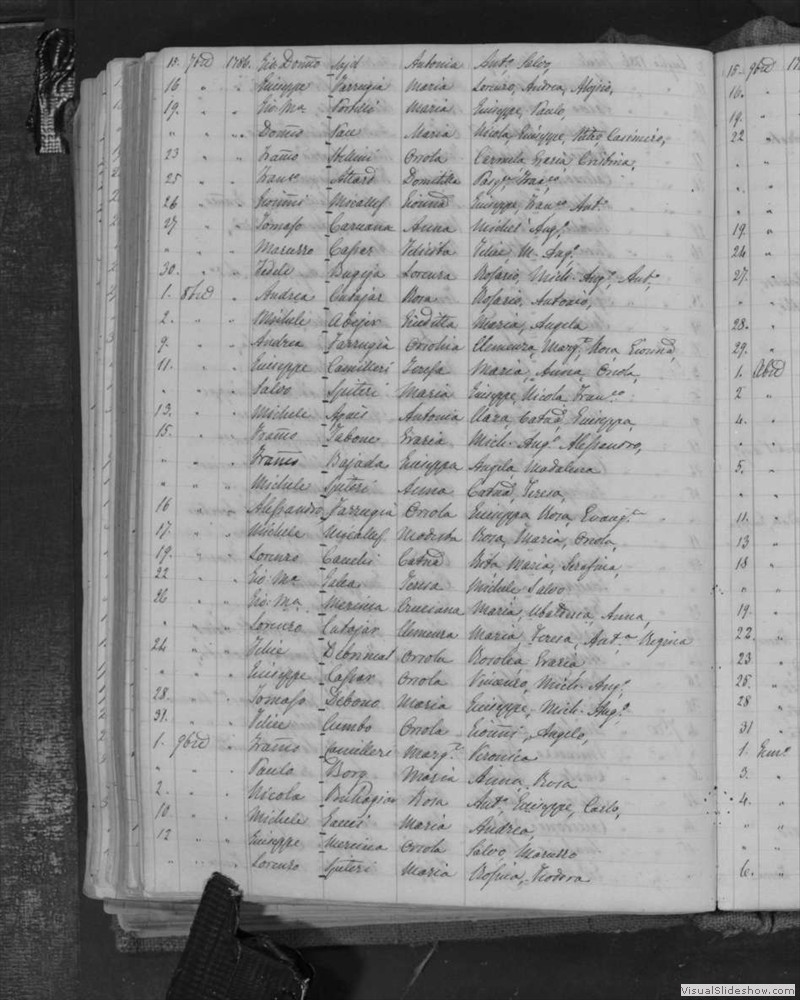 15. 7brd 1786. Gio Domco Sajd Antonia Anto, Salvo,
16 " " Giuseppe Farrugia Maria Lorenzo, Andrea, Aloisio,
19. " " Gio. Ma Portelli Maria Giuseppe, Paulo,
" " " Domco Pace Maria Nicola, Giuseppe, Casimiro,
23 " " Franco Stellini Orsola Carmela, Grazia, Cristina,
25 " " Franco Attard Domitilla
26 " " Gioanni Micallef Gionna Giuseppe, Franco Anto
27 " " Tomaso Caruana Anna Michel' Ango
" " " Maruzzo Cassar Felicita Felice M. Ango
30. " " Fedele Bugeja Lorenza Rosario, Mich. Ango, Anto
1. 8brd " Andrea Cutajar Rosa Rosario, Antonio,
2. " " Michele Abejer Giuditta Maria, Angela
9. " " Andrea Farrugia Orsolia Clemenza, Marga Rosa, Gionna,
11. " " Giuseppe Camilleri Teresa Maria, Anna, Orsola,
" " " Salvo Spiteri Maria Giuseppe, Nicola, Franco
13. " " Michele Apais Antonia Clara, Catna, Giuseppa,
15. " " Franco Tabone Grazia Mich. Ango Alessandro,
" " " Franco Bajada Giuseppa Angela, Madalena
" " " Michele Spiteri Anna Catna, Teresa,
16 " " Alessandro Farrugia Orsola Giuseppa, Rosa, Evanga
17. " " Michele Micallef Modesta Rosa, Maria, Orsola,
19. " " Lorenzo Cauchi Catna Rita, Maria, Serafina,
22 " " Gio. Ma Teresa Michele, Salvo
26 " " Gio. Ma Mercieca Cruciana Maria, Anna,
" " " Lorenzo Cutajar Clemenza Maria, Teresa, Anta Regina
24 " " Felice Debrincat Orsola Rosolea, Grazia
" " " Giuseppe Cassar Orsola Vincenzo, Mich. Ango
28. " " Tomaso Debono Maria Giuseppe, Mich. Ango
31. " " Felice Cumbo Orsola Gioanni, Angelo,
1. 9brd " Franco Camilleri Marga Veronica
" " " Paulo Borg Maria Anna, Rosa
2. " " Nicola Buttagiar Rosa Anto Giuseppe, Carlo,
10 " " Michele Gauci Maria Andrea
12 " " Giuseppe Mercieca Orsola Salvo, Maruzzo
" " " Lorenzo Spiteri Maria Rosina, Teodora
15. 9brd 17
16. "
" "
19. "
22 "
" "
" "
" "
19. "
24 "
27. "
" "
28. "
29. "
1. Xbrd
2 "
4. "
" "
5. "
" "
11. "
13 "
18 "
" "
19. "
22. "
23 "
25. "
28 "
31 "
1. Genro
3. "
4. "
" "
" "
6. "
VisualSlideshow.com